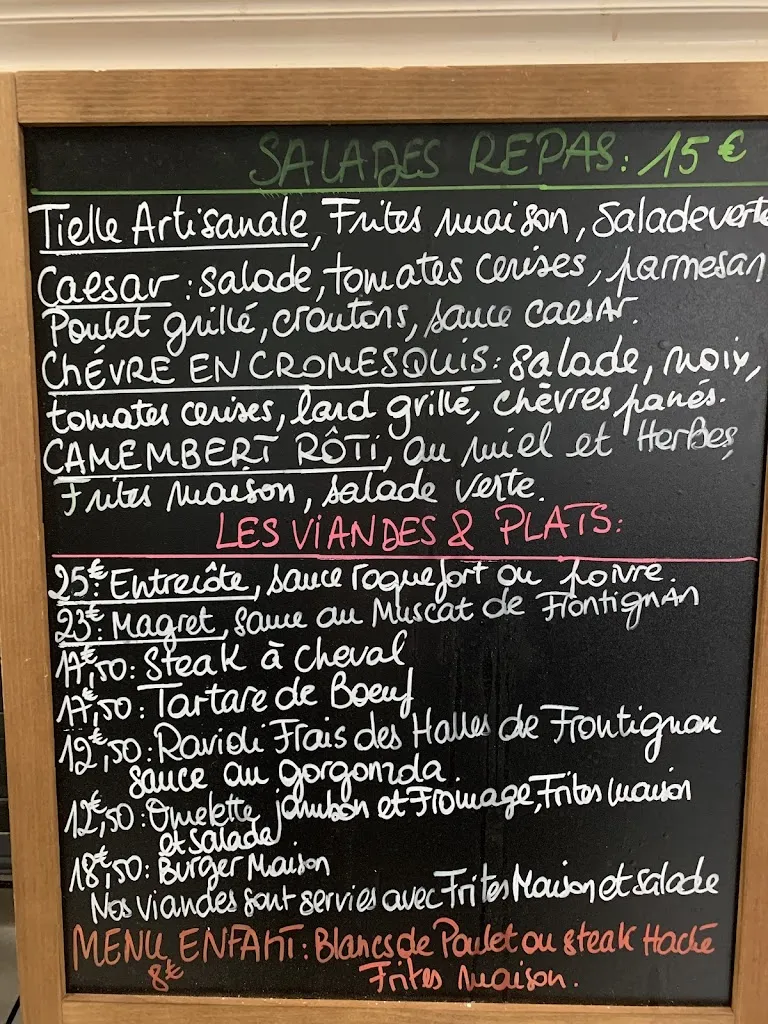 SALADES REPAS: 15€
Tielle Artisanale, Frites maison, Salade verte
Caesar : salade, tomates cerises, parmesan
Poulet grillé, croutons, sauce caesAr.
CHÉVRE EN CROMESQUIS: salade, noix,
tomates cerises, lard grillé, chèvres panés.
CAMEMBERT RÔTi, au miel et Herbes,
Frites maison, salade verte.
LES VIANDES & PLATS:
25€: Entrecôte, sauce roquefort ou poivre.
23€: Magret, sauce au Muscat de Frontignan
17€,50: Steak à cheval
17€,50: Tartare de Boeuf
12€,50: Ravioli Frais des Halles de Frontignan
sauce au gorgonzola.
12€,50: Omelette jambon et Fromage, Frites maison
et salade
18€,50: Burger Maison
Nos viandes sont servies avec Frites Maison et salade
MENU ENFANT: Blancs de Poulet ou steak Haché
8€ Frites Maison.